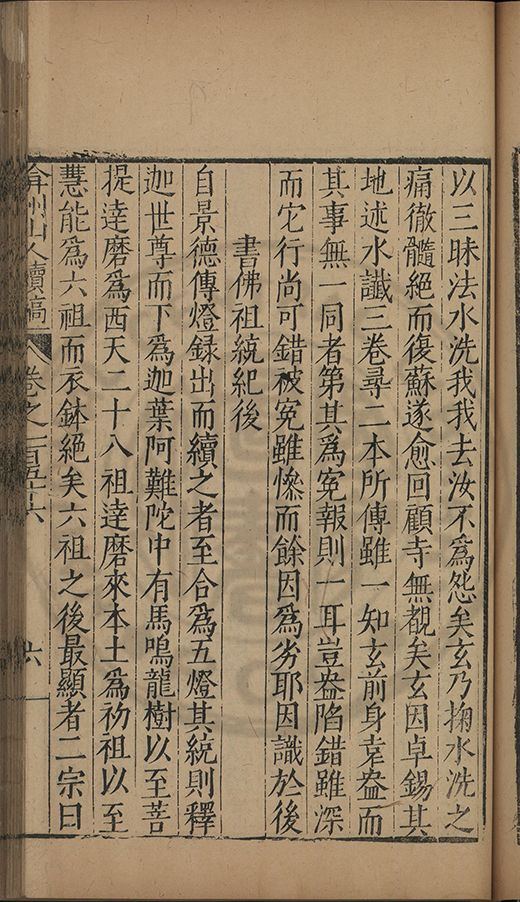 以三昧法水洗我我去汝不爲怨矣玄乃掬水洗之
痛徹髓絕而復蘇遂愈回顧寺無覩矣玄因卓錫其
地述水讖三卷尋二本所傳雖一知玄前身袁盎而
其事無一同者第其爲寃報則一耳豈盎陷錯雖深
而它行尚可錯被寃雖慘而餘因爲劣耶因識於後
書佛祖統紀後
自景德傳燈録出而續之者至合爲五燈其統則釋
迦世尊而下爲迦葉阿難陀中有馬鳴龍樹以至菩
提達磨爲西天二十八祖達磨來本土爲初祖以至
慧能爲六祖而衣鉢絕矣六祖之後最顯者二宗曰
弇州山人續稿 卷之一百五十六 六